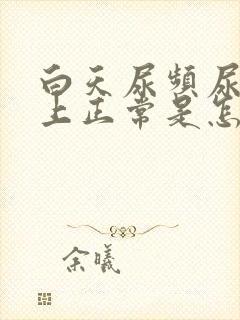 白天尿频尿
上正常是怎
余曦